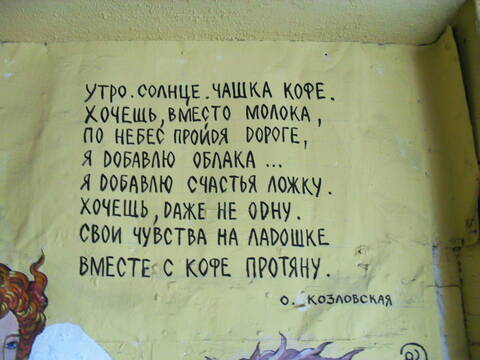 УТРО.СОЛНЦЕ.ЧАШКА КОФЕ.
ХОЧЕШЬ,ВМЕСТО МОЛОКА,
ПО НЕБЕС ПРОЙДЯ ДОРОГЕ,
Я ДОБАВЛЮ ОБЛАКА ...
Я ДОБАВЛЮ СЧАСТЬЯ ЛОЖКУ.
ХОЧЕШЬ, ДАЖЕ НЕ ОДНУ.
СВОИ ЧУВСТВА НА ЛАДОШКЕ
ВМЕСТЕ С КОФЕ ПРОТЯНУ.
О. КОЗЛОВСКАЯ